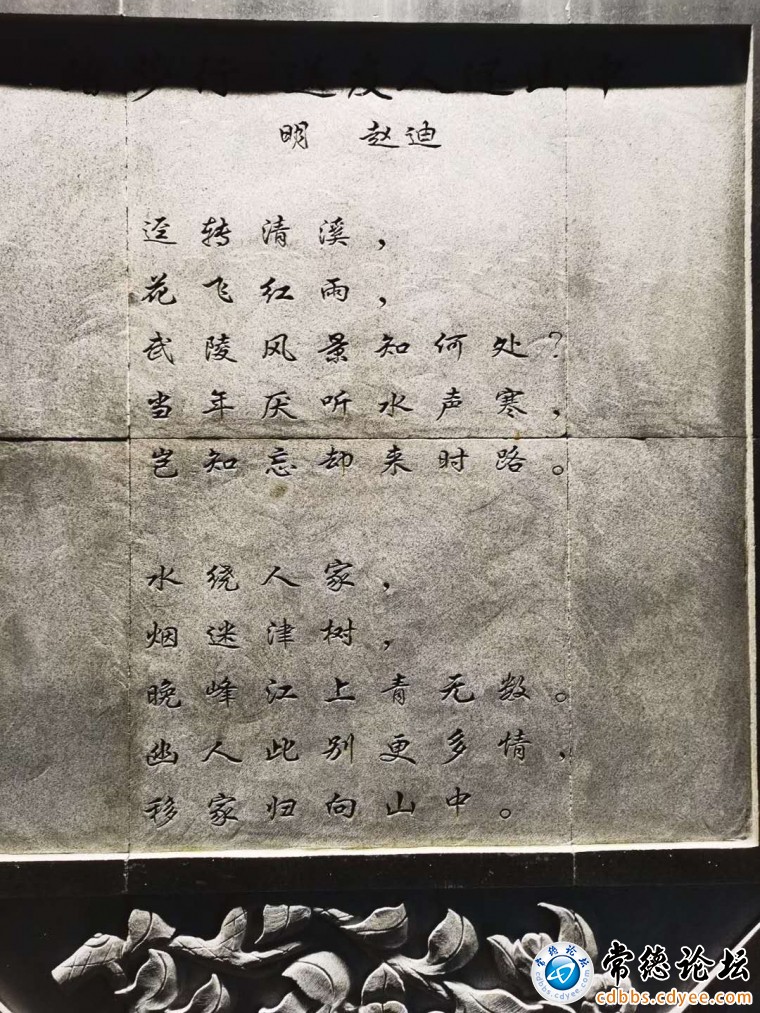 踏莎行 送友人 山中
明 赵迪
迳转清溪，
花飞红雨，
武陵风景知何处？
当年厌听水声寒，
岂知忘却来时路。
水绕人家，
烟迷津树，
晚峰江上青无数。
幽人此别更多情，
移家归向山中。
常德论坛
cdbbs.cdyee.com